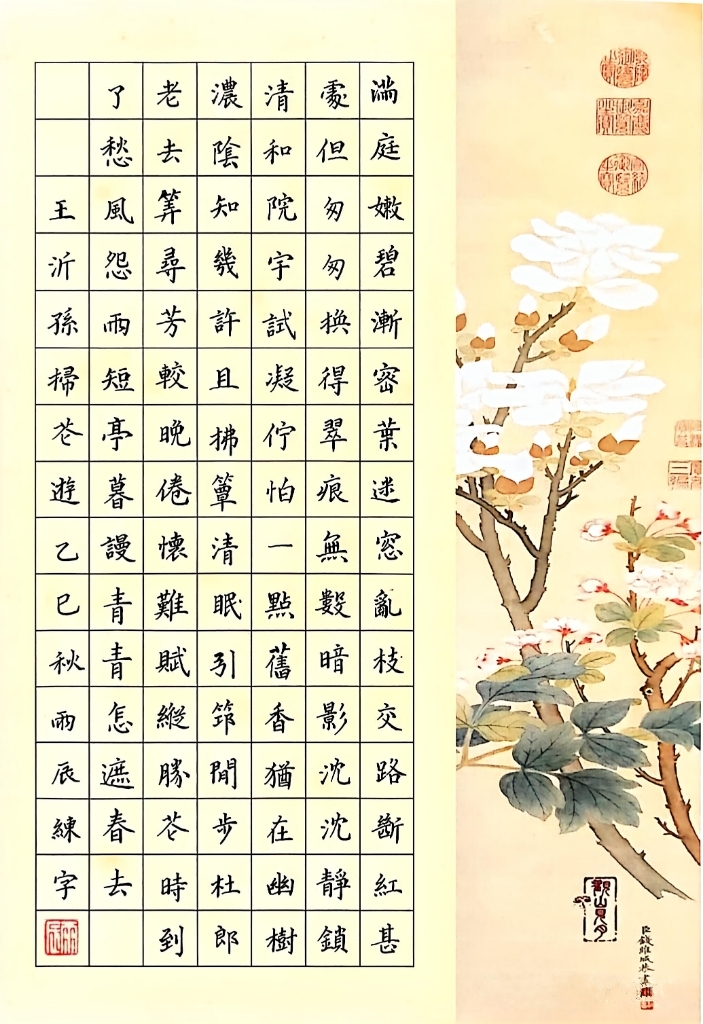 滿庭嫩碧漸密葉迷窓亂枝交路斷紅甚
處但匆匆換得翠痕無數暗影沈沈靜鎖
清和院宇試凝佇怕一點舊香猶在幽樹
濃陰知幾許且拂簟清眠引筇閒步杜郎
老去筭尋芳較晚倦懷難賦縱勝花時到
了愁風怨雨短亭暮謾青青怎遮春去
王沂孫掃花遊乙巳秋雨辰練字
臣錢維城恭畫